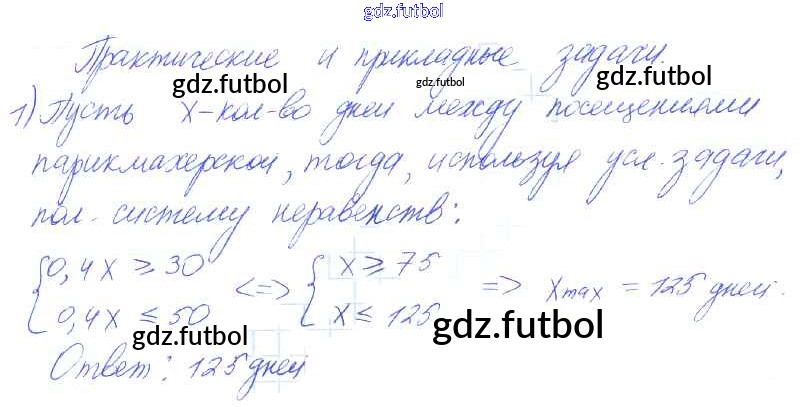 gdz.futbol
Практические и прикладные задачи.
gdz.futbol gdz.futbol gdz.futbol
1) Пусть x - кол-во дней между посещениями
парикмахерской, тогда, используя усл. задачи,
пол. систему неравенств:
{ 0,4x ≥ 30 <=> { x ≥ 75 => xmax = 125 дней.
0,4x ≤ 50 x ≤ 125
gdz.futbol gdz.futbol
Ответ: 125 дней